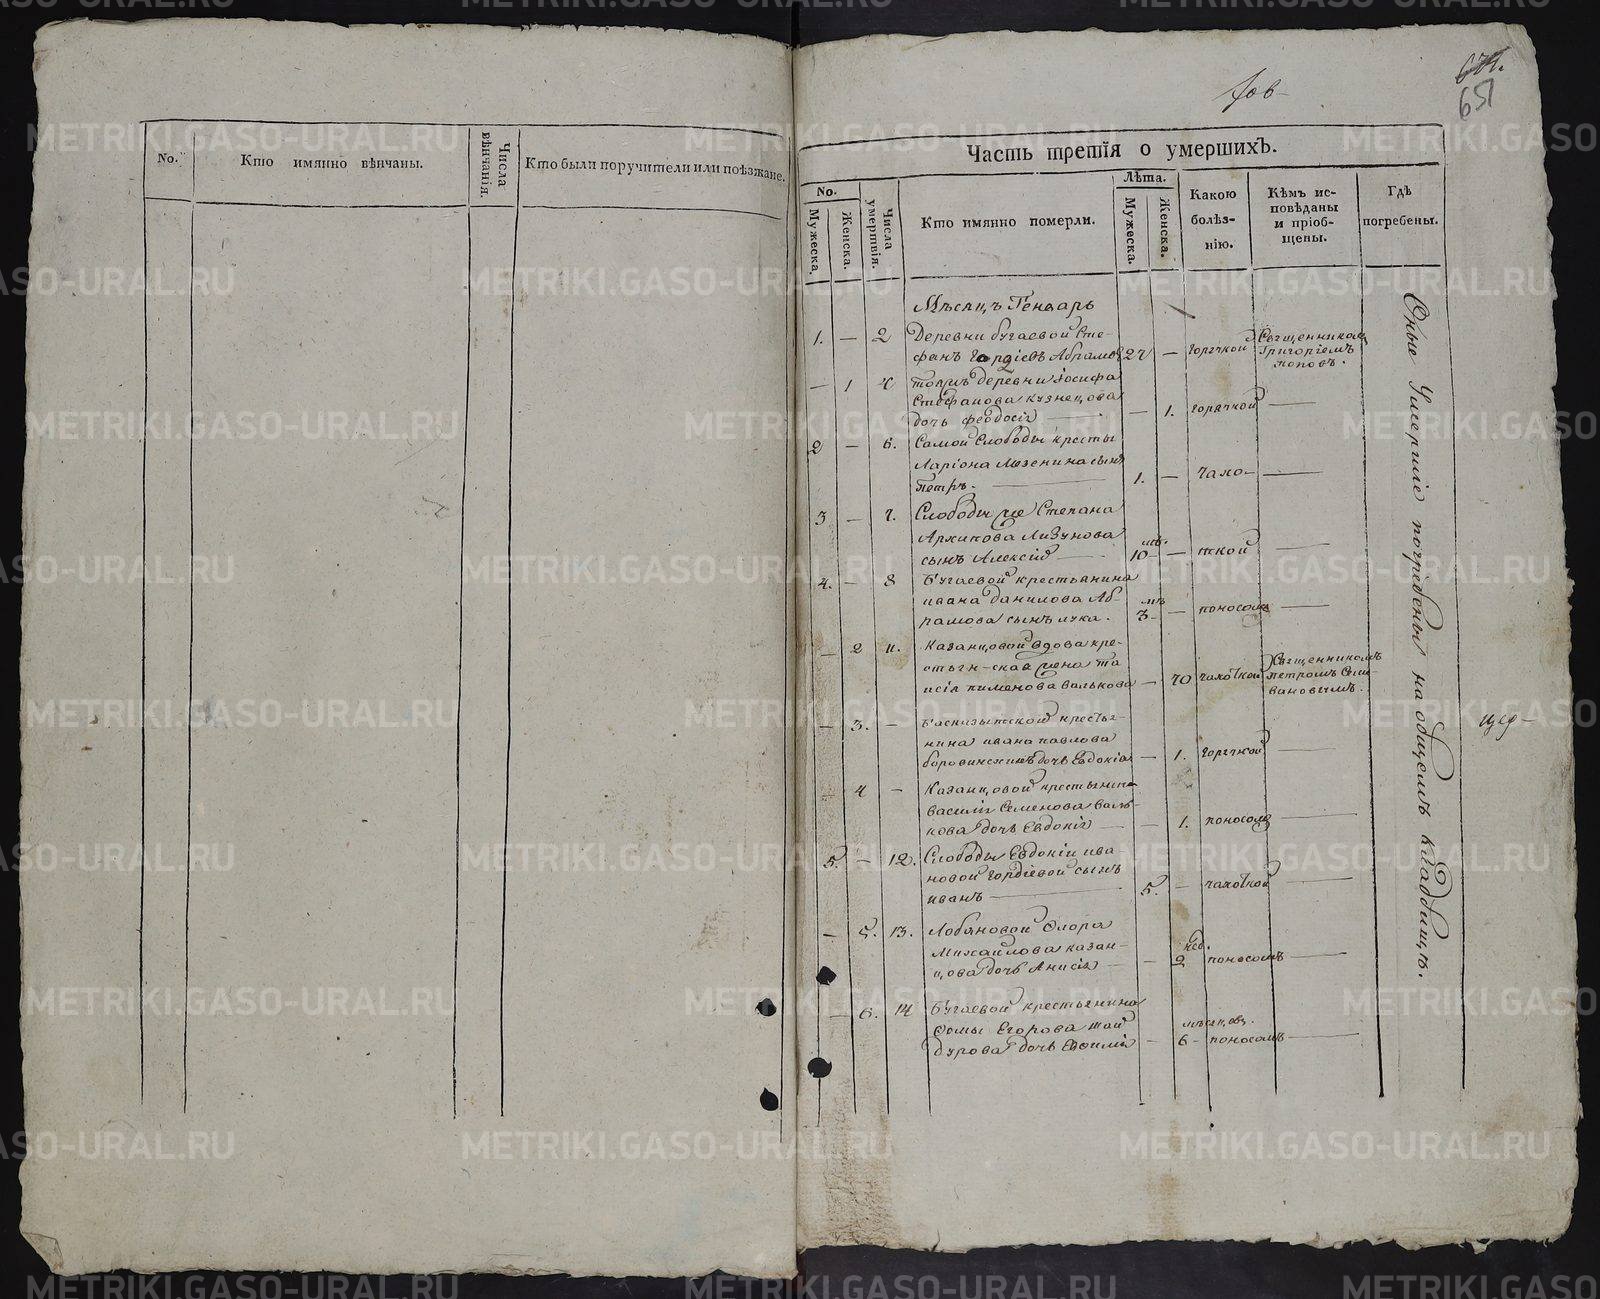 No.
Кто имянно вѣнчаны.
Числа вѣнчанія.
Кто были поручители или поѣзжане.
651
Часть третія о умершихъ.
No.
Мужеска.
Женска.
Числа умертвія.
Кто имянно померли.
Лѣта.
Мужеска.
Женска.
Какою болѣз-
нію.
Кѣмъ ис-
повѣданы
и пріоб-
щены.
Гдѣ
погребены.
Мѣсяцъ Генварь
1. — 2 Деревни бугаевой Сте-
фанъ Гордіевъ Абрамов 27 — горячкой Священникомъ
Григоріемъ
поповъ.
— 1 4 тояжъ деревни Іосифа
Стефанова кузнецова
дочь феодосія — 1. горячкой —
2 — 6. Самой Слободы кресть
Ларіона сынъ
петръ. — 1. — чахо-
3 — 7. Слободы же Степана
Архипова Лизунова
сынъ Алексій — мѣ. 10 — — ткой —
4. — 8 Бугаевой крестьянина
ивана данилова Аб-
рамова сынъ лука. мѣ 3 — поносомъ —
— 2 11. Казанцовой вдова кре-
стьян-ская жена та
исія пименова валькова — 70 чахоткой Священникомъ
петромъ Сели-
вановымъ.
— 3. — крестья-
нина ивана павлова
дочь Евдокія — 1. горячкой —
— 4 — Казанцовой крестьянина
василія Семенова валь-
кова дочь Евдокія — — 1. поносомъ —
5. — 12. Слободы Евдокіи ива-
новой гордіевой сынъ
иванъ — 5. — чахоткой —
— 5. 13. Лобановой Флора
Михайлова казан-
цова дочь Анисія — — нед. 2 поносомъ —
— 6. 14 Бугаевой крестьянина
Фомы Егорова шай
дурова дочь Евфимія — мѣсяцов. 6 — поносомъ —
Оные Умершіе погребены на общемъ кладбищѣ.
METRIKI.GASO-URAL.RU